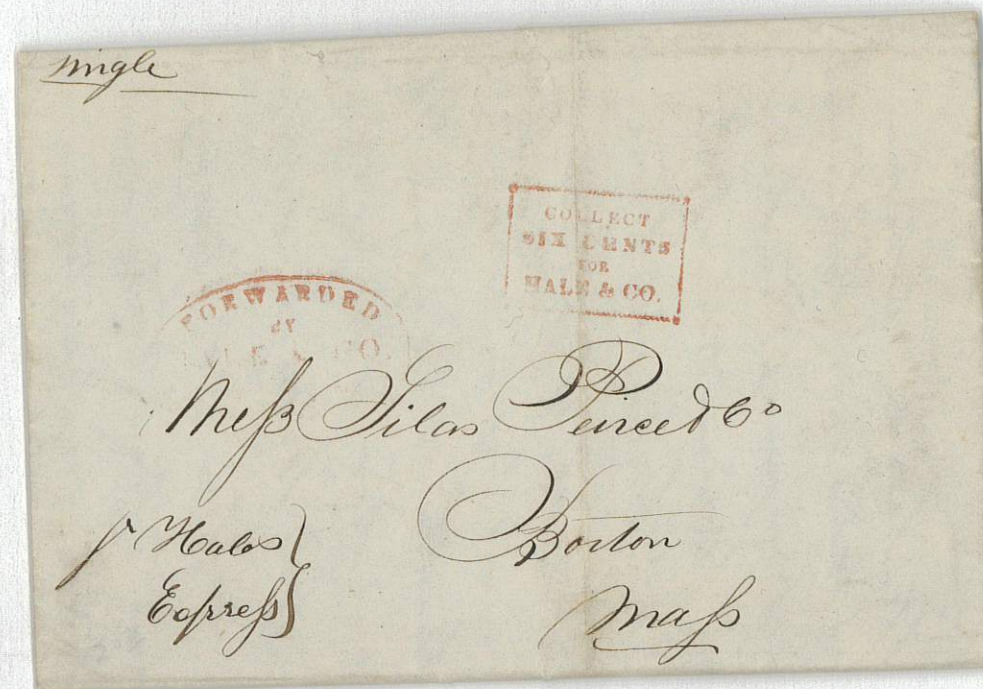 single
COLLECT
SIX CENTS
FOR
HALE & CO.
FORWARDED
BY
HALE & CO.
Mess Silas Peirce & Co
Boston
Mass
pr Hales
Express